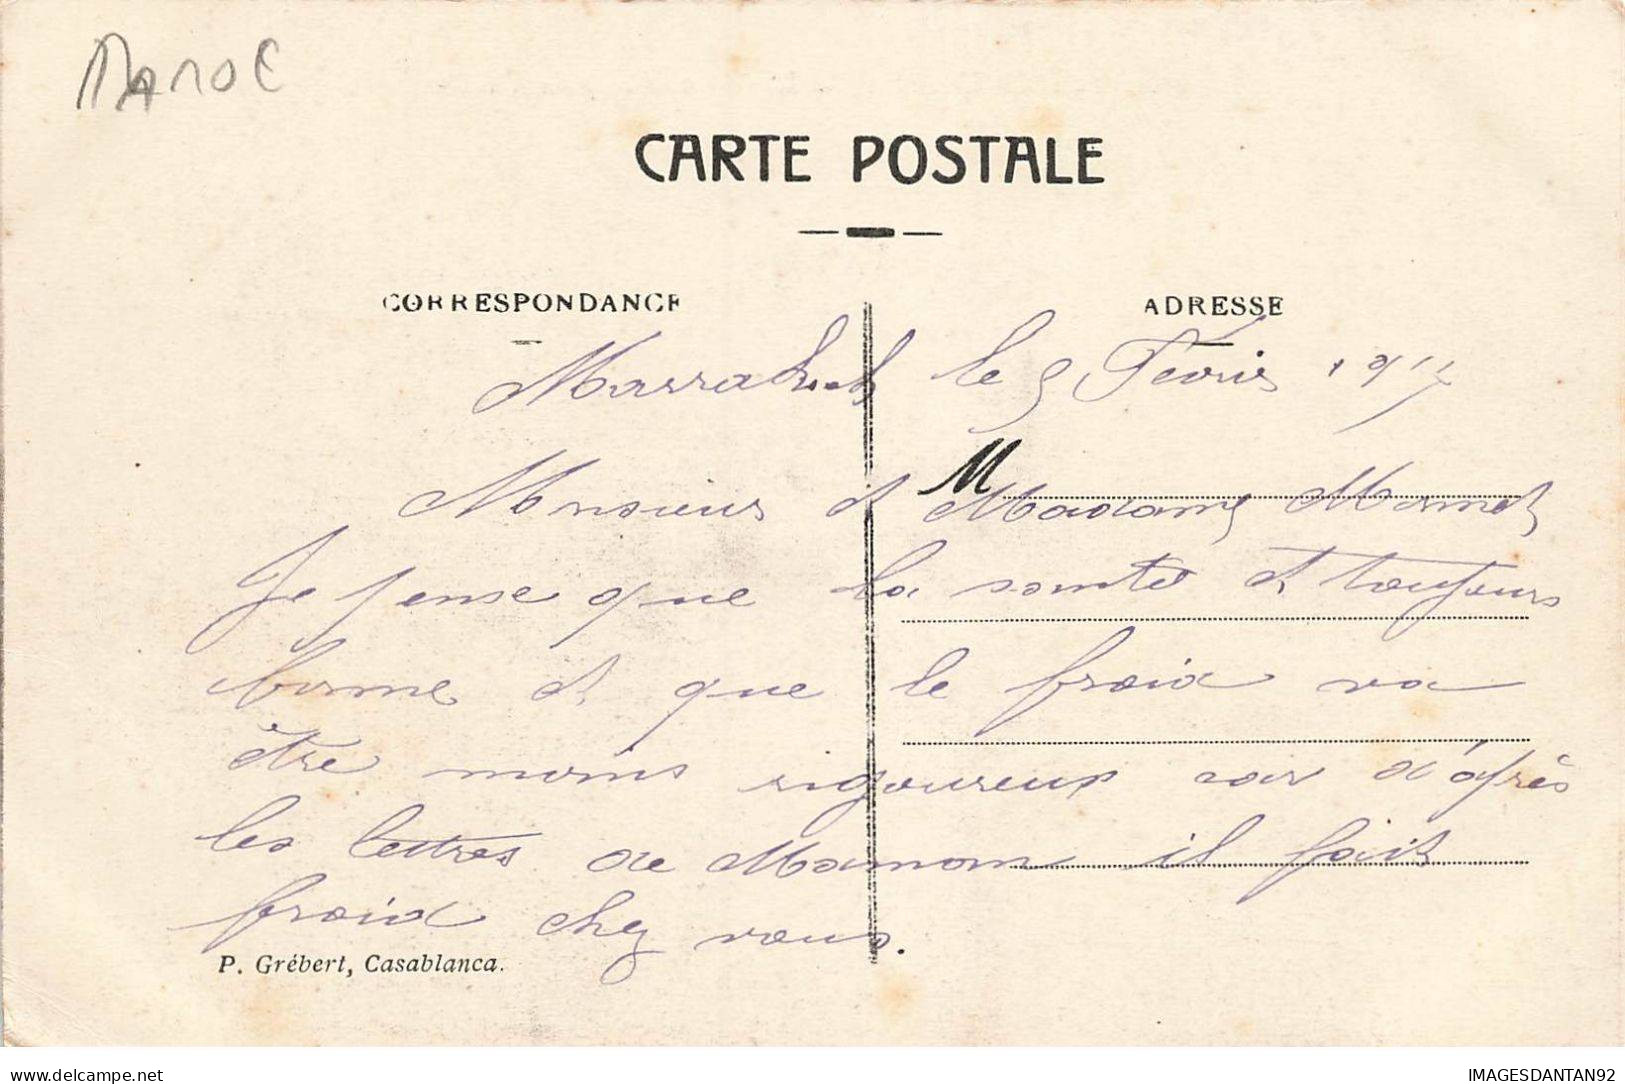 MAROC
CARTE POSTALE
CORRESPONDANCE
ADRESSE
Marrakech le 5 Fevrier 1917
M
Monsieur et Madame
Je pense que la santé et toujours
bonne et que le froid va
être moins rigoureux car d'après
les lettres de Maman il fait
froid chez vous.
P. Grébert, Casablanca.
delcampe.net
IMAGESDANTAN92